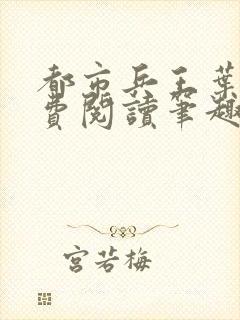 都市兵王葉
費閱讀筆趣
宮若梅